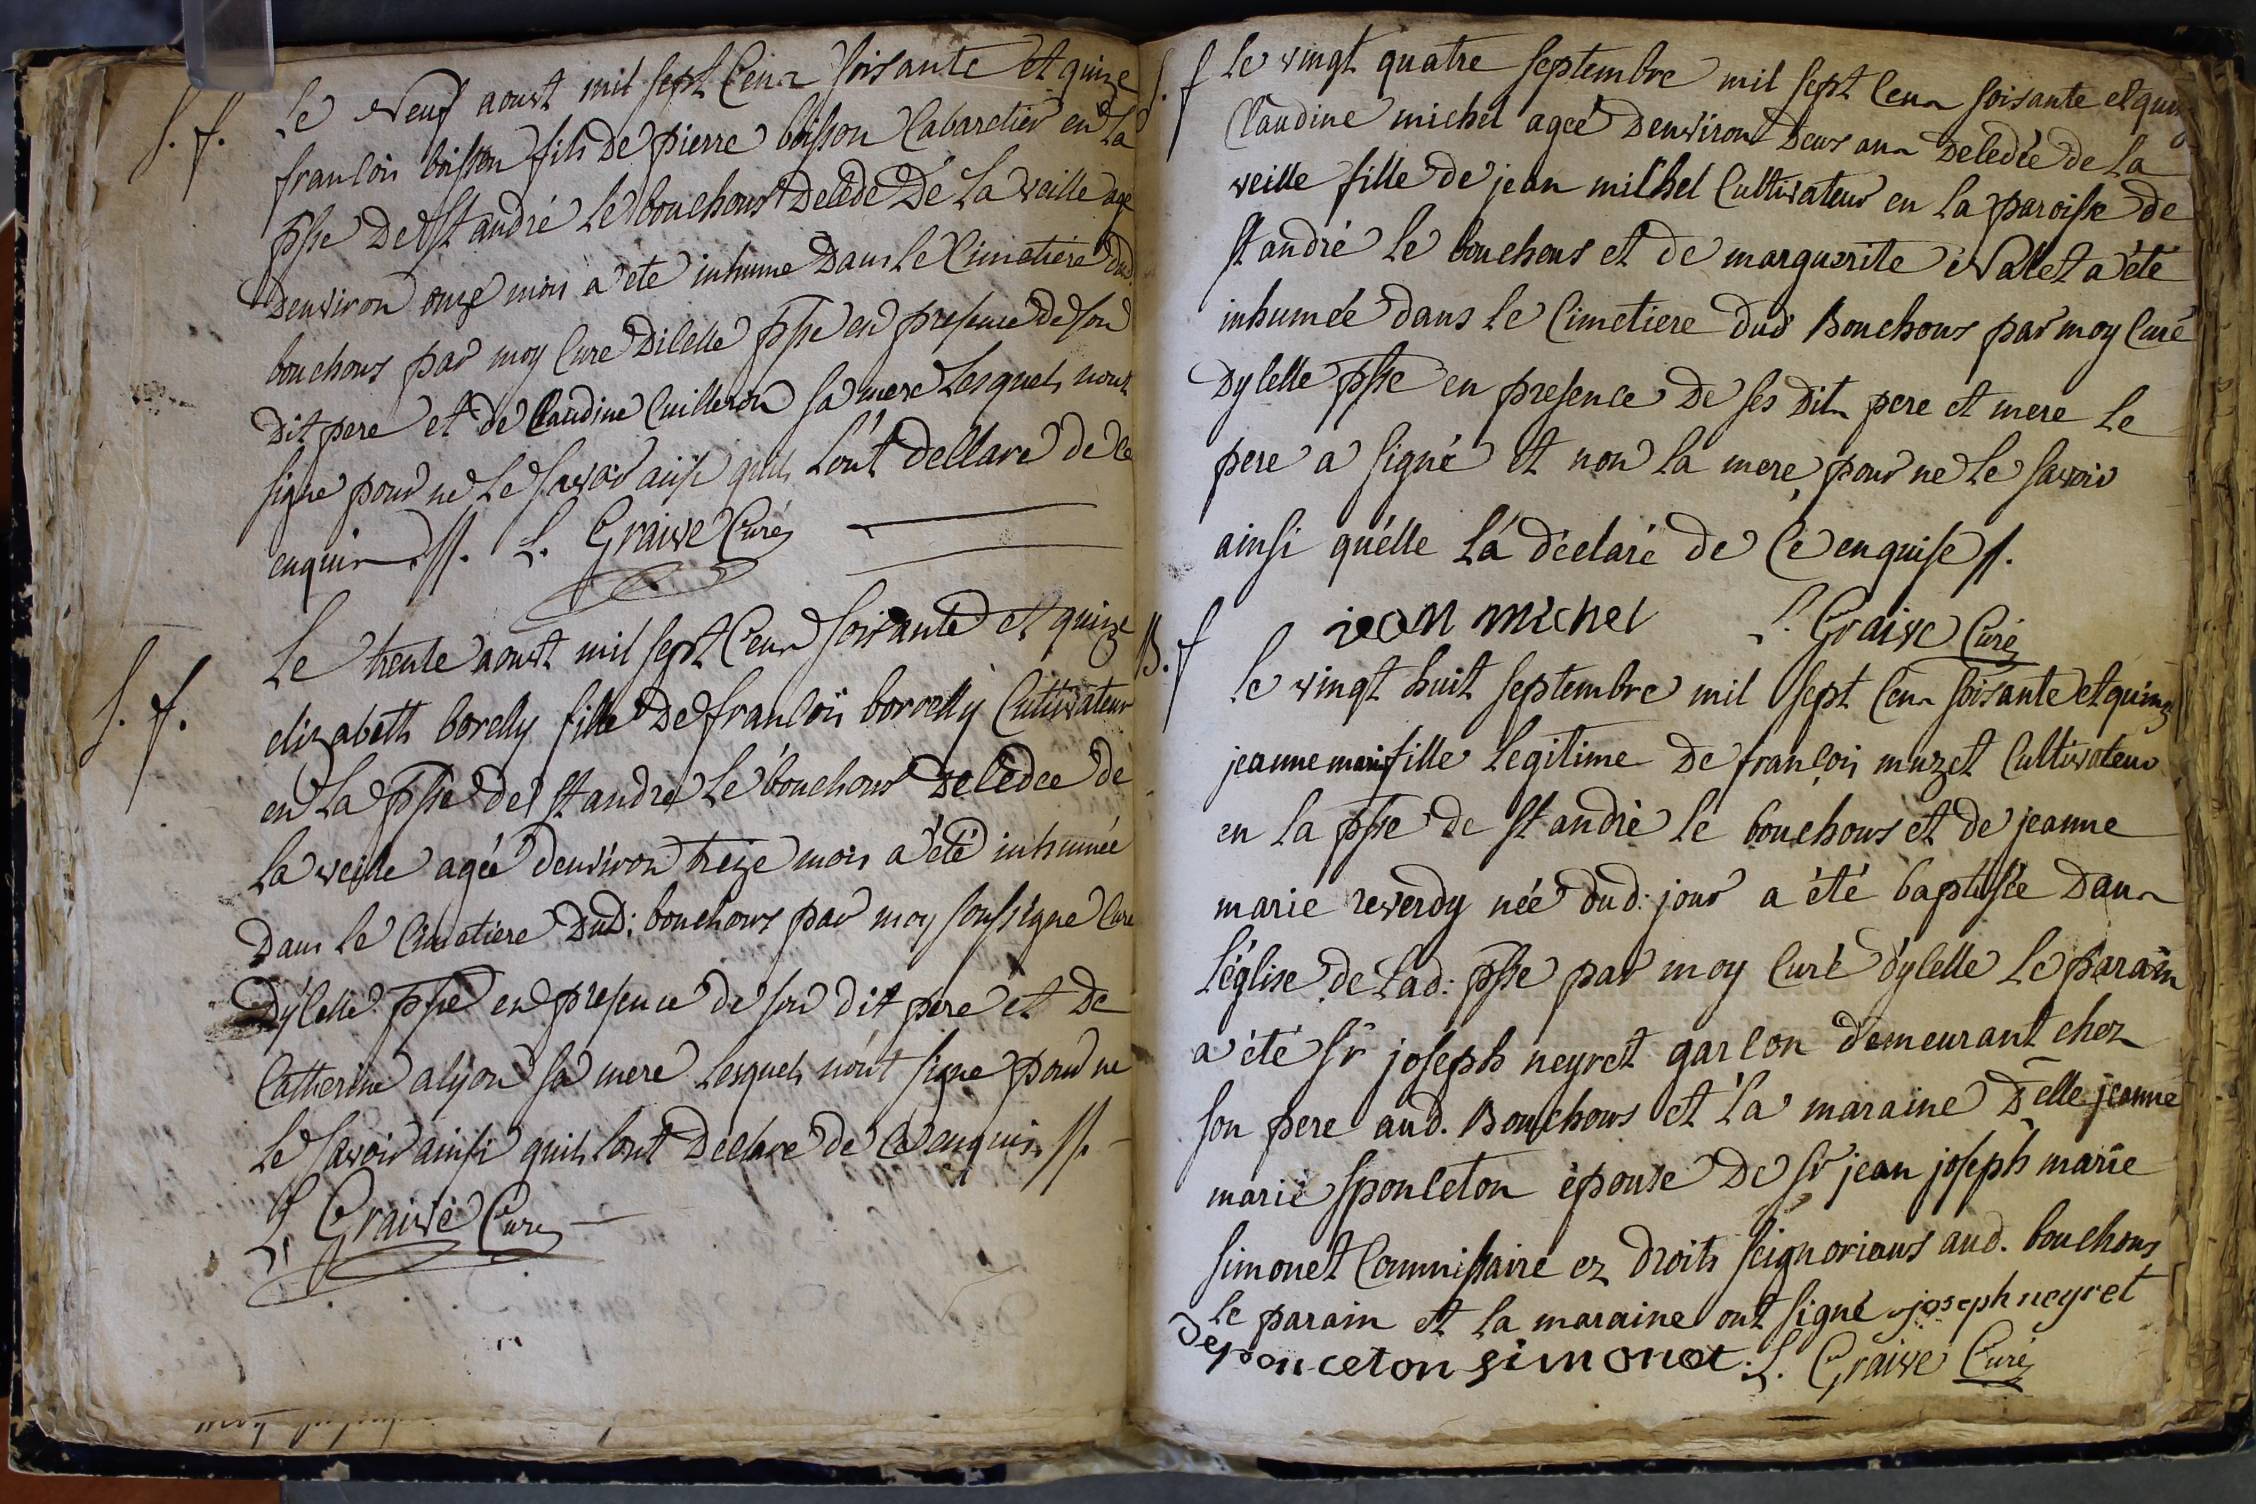 S. f.
Le Neuf aoust mil sept Cens soisante et quinze
francois boisson fils De pierre boisson Cabaretier en La
psse De St andré Le bouchoux Decede De La veille age
Denviron onze mois a ete inhume Dans Le Cimetiere dud.
bouchoux par moy Cure Dicelle psse en presence de son
Dit pere et de Claudine Cuilleron sa mere Lesquels n'ont
signe pour ne Le savoir ainsi quils L'ont declaré de ce
enquis //. L. Graive Curé
S. f.
Le trente aoust mil sept Cens soixante et quinze
elizabeth borelly fille De francois borrelly Cultivateur
en La psse de St andré Le bouchoux Decedee de
La veille agée denviron treize mois a été inhumée
Dans Le Cimetiere Dud: bouchoux par moy soussigne Cure
Dycelle psse en presence de son dit pere et De
Catherine alyon sa mere Lesquels n'ont signe pour ne
Le savoir ainsi quils lont Déclaré de Ce enquis //.
L. Graive Curé
S. f
Le vingt quatre septembre mil sept Cens soisante et quinze
Claudine michel agée Denviron Deux ans Decedée de La
veille fille de jean michel Cultivateur en La paroisse de
St andré Le bouchoux et de marguerite Valet a été
inhumée dans Le Cimetiere dud Bouchoux par moy Curé
Dycelle psse en presence De ses Dits pere et mere Le
pere a signé et non La mere pour ne Le savoir
ainsi qu'elle L'a déclaré de Ce enquise //.
jean michel L. Graive Curé
B. f
Le vingt huit septembre mil sept Cens soisante et quinze
jeanne marie fille Legitime De françois muzet Cultivateur
en La psse de St andré Le bouchoux et de jeanne
marie reverdy née dud: jour a été baptisée Dans
L'église de Lad: psse par moy Curé dycelle Le parain
a été Sr joseph neyret garcon demeurant chez
son pere aud. Bouchoux et La maraine Delle jeanne
marie sponceton épouse De Sr jean joseph marie
simonet Commissaire ez droits seignorieux aud. bouchoux
Le parain et La maraine ont signé joseph neyret
desponceton simonet L. Graive Curé